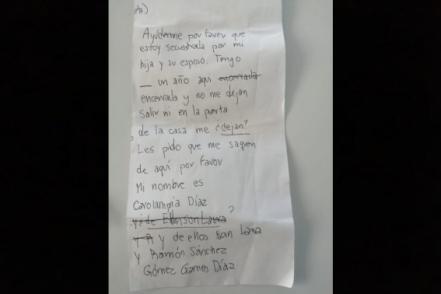 Ayúdenme por favor que
estoy secuestrada por mi
hija y su esposo. Tengo
__ un año aqui encerrada
encerrada y no me dejan
Salir ni en la puerta
de la casa me ¿dejan?
Les pido que me saquen
de aquí por favor
Mi nombre es
Carolampia Díaz
y de
?
y de ellos son Lana
y Ramón Sánchez
Gómez Gomes Díaz